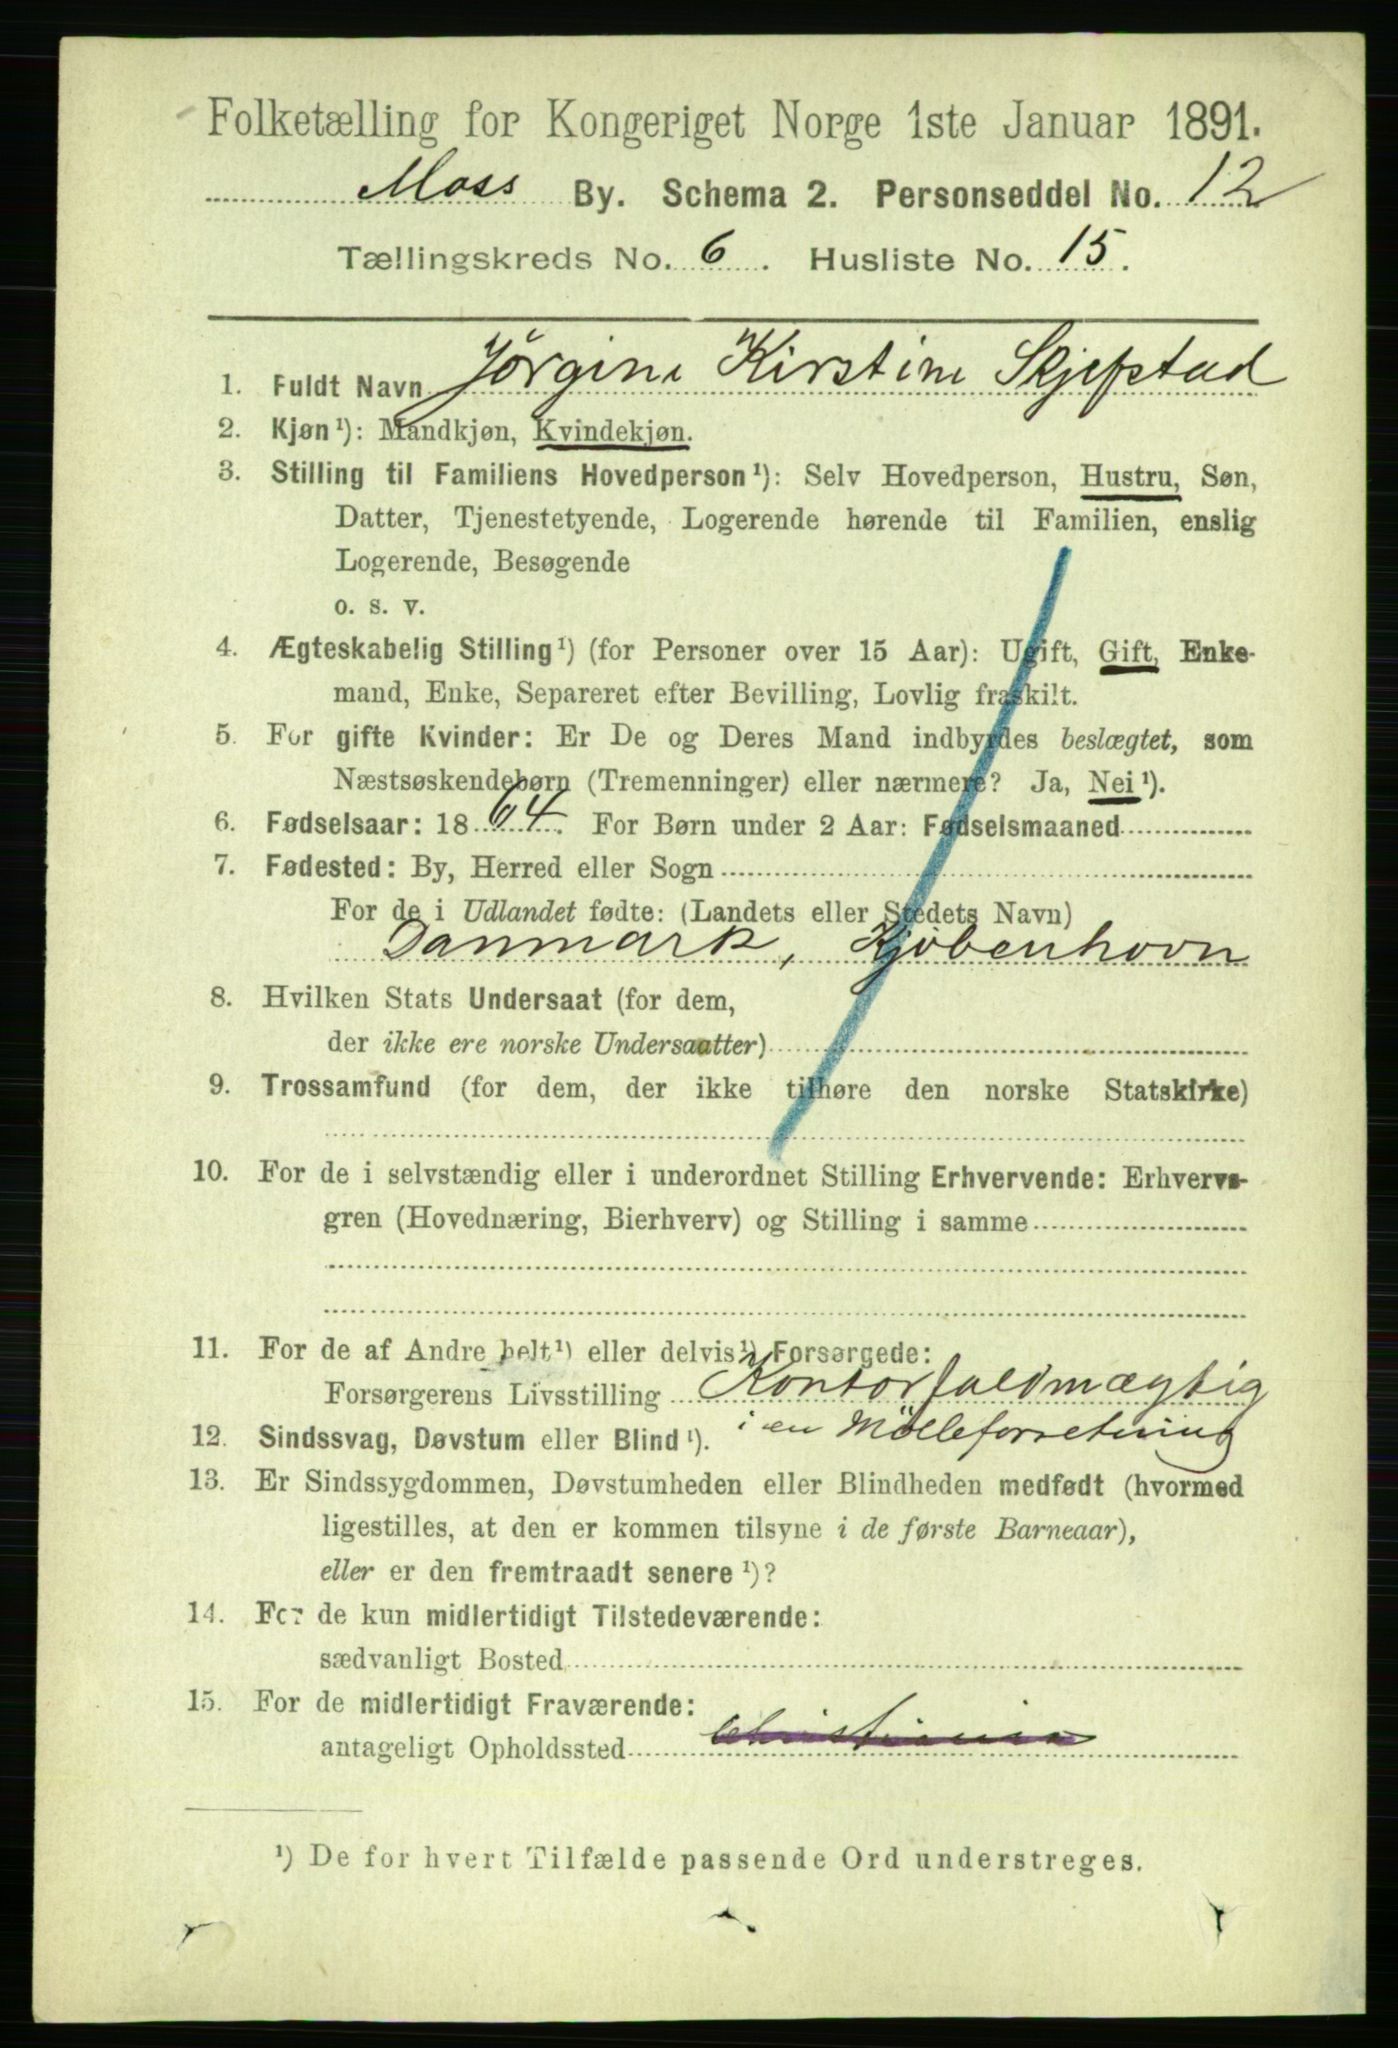 Folketælling for Kongeriget Norge 1ste Januar 1891.
Moss By. Schema 2. Personseddel No. 12
Tællingskreds No. 6. Husliste No. 15.
1. Fuldt Navn Jörgine Kirstine Skjefstad
2. Kjøn¹): Mandkjøn, Kvindekjøn.
3. Stilling til Familiens Hovedperson¹): Selv Hovedperson, Hustru, Søn,
Datter, Tjenestetyende, Logerende hørende til Familien, enslig
Logerende, Besøgende
o. s. v.
4. Ægteskabelig Stilling¹) (for Personer over 15 Aar): Ugift, Gift, Enke-
mand, Enke, Separeret efter Bevilling, Lovlig fraskilt.
5. For gifte Kvinder: Er De og Deres Mand indbyrdes beslægtet, som
Næstsøskendebørn (Tremenninger) eller nærmere? Ja, Nei¹).
6. Fødselsaar: 1864. For Børn under 2 Aar: Fødselsmaaned
7. Fødested: By, Herred eller Sogn
For de i Udlandet fødte: (Landets eller Stedets Navn)
Danmark, Kjöbenhovn
8. Hvilken Stats Undersaat (for dem,
der ikke ere norske Undersaatter)
9. Trossamfund (for dem, der ikke tilhøre den norske Statskirke)
10. For de i selvstændig eller i underordnet Stilling Erhvervende: Erhvervs-
gren (Hovednæring, Bierhverv) og Stilling i samme
11. For de af Andre helt¹) eller delvis¹) Forsørgede:
Forsørgerens Livsstilling Kontorfuldmægtig
i en Mölleforretning
12. Sindssvag, Døvstum eller Blind¹).
13. Er Sindssygdommen, Døvstumheden eller Blindheden medfødt (hvormed
ligestilles, at den er kommen tilsyne i de første Barneaar),
eller er den fremtraadt senere¹)?
14. For de kun midlertidigt Tilstedeværende:
sædvanligt Bosted
15. For de midlertidigt Fraværende:
antageligt Opholdssted Christiania
¹) De for hvert Tilfælde passende Ord understreges.